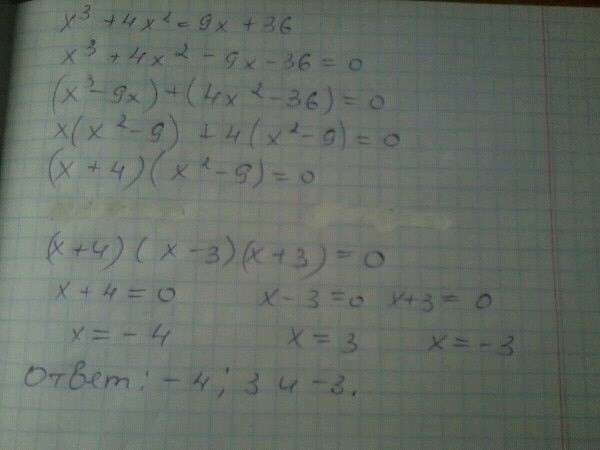 x³ + 4x² = 9x + 36
x³ + 4x² - 9x - 36 = 0
(x³ - 9x) + (4x² - 36) = 0
x(x² - 9) + 4(x² - 9) = 0
(x + 4)(x² - 9) = 0
(x + 4)(x - 3)(x + 3) = 0
x + 4 = 0 x - 3 = 0 x + 3 = 0
x = -4 x = 3 x = -3
Ответ: -4; 3 и -3.